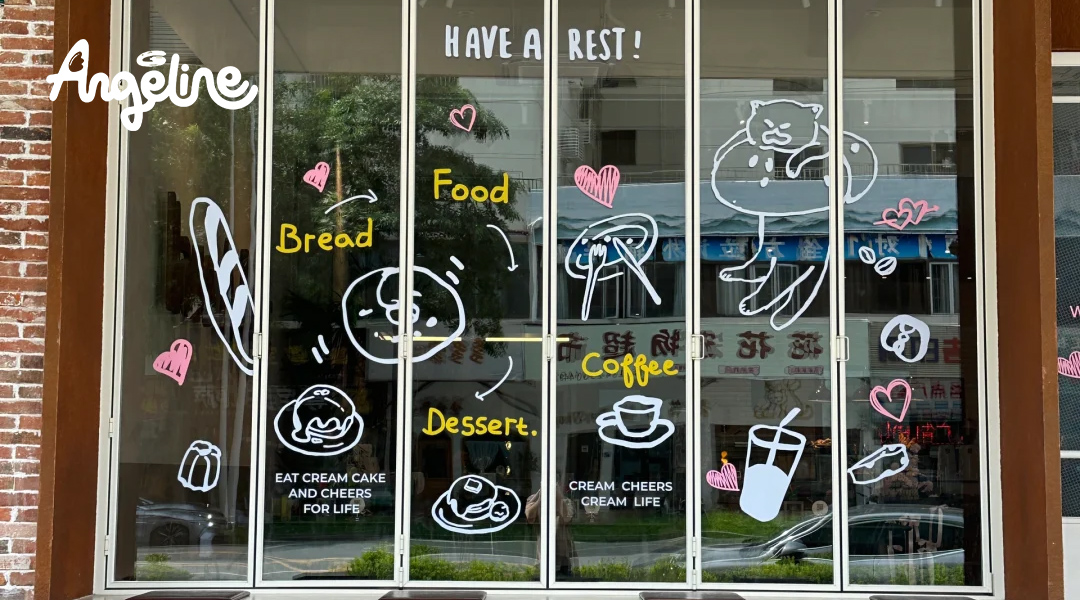 Angeline
HAVE A REST!
Food
Bread
Coffee
Dessert.
EAT CREAM CAKE
AND CHEERS
FOR LIFE
CREAM CHEERS
CREAM LIFE